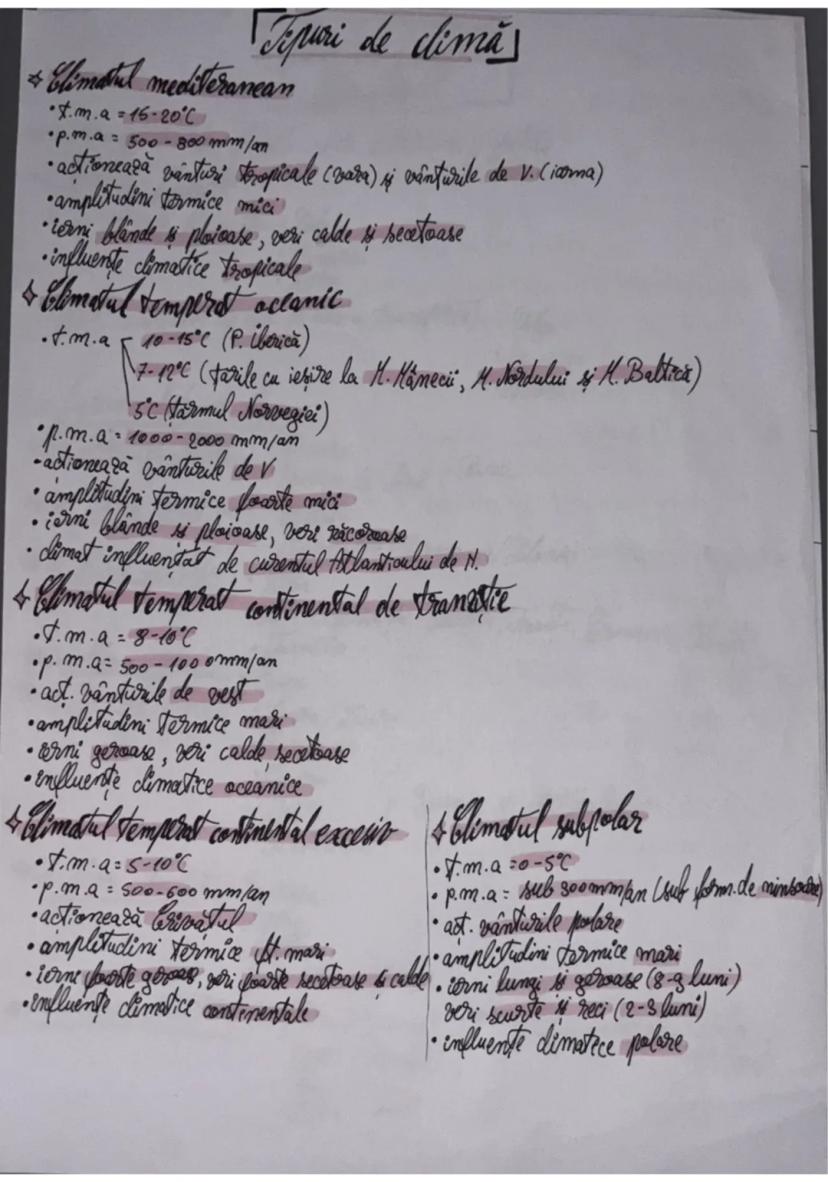 Tipuri de climă
Climatul mediteranean
• t.m.a = 15-20°C
• p.m.a = 500-800 mm/an
• acționează vânturi tropicale (vara) și vânturile de V. (iarna)
• amplitudini termice mici
• ierni blânde și ploioase, veri calde și secetoase
• influențe climatice tropicale
Climatul temperat oceanic
• t.m.a 10-15°C (P. Iberică)
7-12°C (țările cu ieșire la M. Mânecii, M. Nordului și M. Baltică)
5°C (țărmul Norvegiei)
• p.m.a = 1000-2000 mm/an
- acționează vânturile de V
• amplitudini termice foarte mici
• ierni blânde și ploioase, veri răcoroase
• climat influențat de curentul Atlanticului de N.
Climatul temperat continental de tranziție
• T.m.a = 8-10°C
• p.m.a = 500-1000mm/an
• act. vânturile de vest
• amplitudini termice mari
• ierni geroase, veri calde, secetoase
• influențe climatice oceanice
Climatul temperat continental excesiv
• T.m.a = 5-10°C
• p.m.a = 500-600 mm/an
• acționează Crivățul
• amplitudini termice ft. mari
• ierni foarte geroase, veri foarte secetoase și calde
• influențe climatice continentale
Climatul subpolar
• T.m.a = 0-5°C
• p.m.a = sub 300mm/an (sub form. de ninsoare)
• act. vânturile polare
• amplitudini termice mari
• ierni lungi și geroase (8-9 luni)
veri scurte și reci (2-3 luni)
• influențe climatece polare